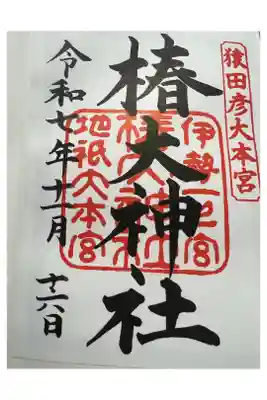 猿田彦大本宮
伊勢一之宮
椿大神社
椿大神社
地祇大本宮
令和七年十一月十六日